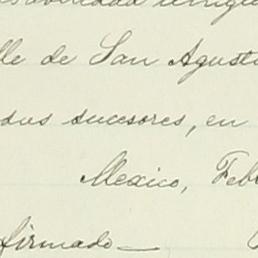 lle de San Agustí
dos sucesores, en
Mexico, Feb
firmado